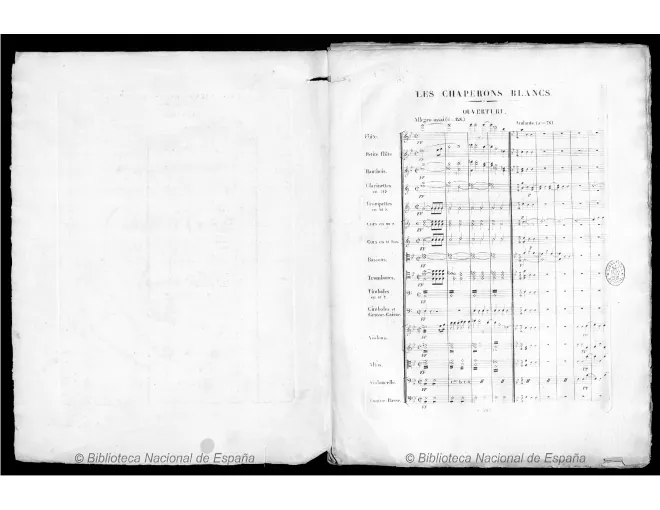 LES CHAPERONS BLANCS
OUVERTURE.
Allegro
Andante
Flûte.
Petite flûte
Hautbois.
Clarinettes
Trompettes
Cors en
Cors en
Bassons.
Trombones.
Timbales
Cimbales et
Grosse-Caisse.
Violons.
Alto.
Violoncelle.
Contre Basse.
© Biblioteca Nacional de España
© Biblioteca Nacional de España